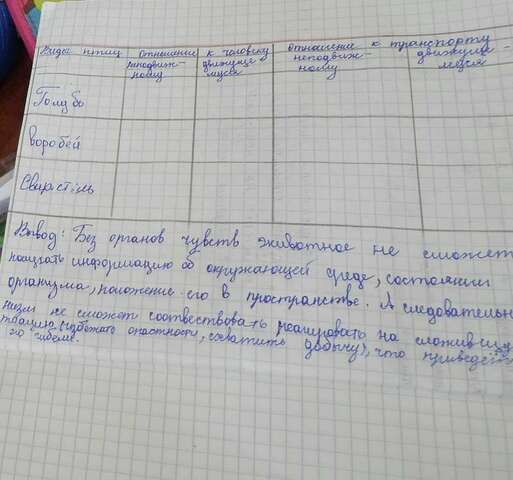 Виды птиц отношение к человеку отношение к транспорту
неподвиж- движуще неподвиж- движуще-
ному муся ному муся
Голубь
воробей
Свиристель
Вывод: Без органов чувств животное не сможет
получать информацию об окружающей среде, состоянии
организма, положение его в пространстве. А следовательно
не сможет соотвествовать реагировать на сложившую
(избежать опастности, схватить добычу), что приведёт
гибели.